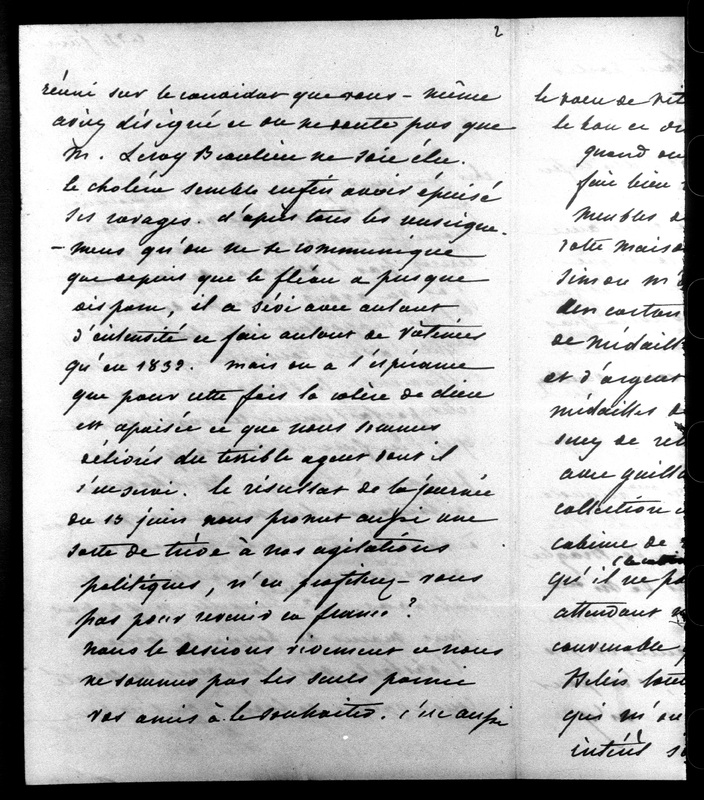 2
réuni sur le candidat que vous-même
aviez désigné et on ne doute pas que
M. Leroy Beaulieu ne soit élu.
le choléra semble enfin avoir épuisé
ses ravages. d'après tous les renseigne-
-mens qu'on me communique
que depuis que le fléau a presque
disparu, il a sévi avec autant
d'intensité et fait autant de victimes
qu'en 1832. mais on a l'espérance
que pour cette fois la colère de dieu
est apaisée et que nous sommes
délivrés du terrible agent dont il
s'est servi. le résultat de la journée
du 13 juin nous promet aussi une
sorte de trève à nos agitations
politiques, n'en profitez-vous
pas pour revenir en france?
nous le désirons vivement et nous
ne sommes pas les seuls parmi
vos amis à le souhaiter. c'est aussi
le voeu de
le bon et
quand on
fait bien
meubles
votre maison
Simon m'
des carton
de médaill
et d'argent
médailles
avec guill
collection
cabinet de
qu'il ne
attendant
convenable
qui m'on
intérêt